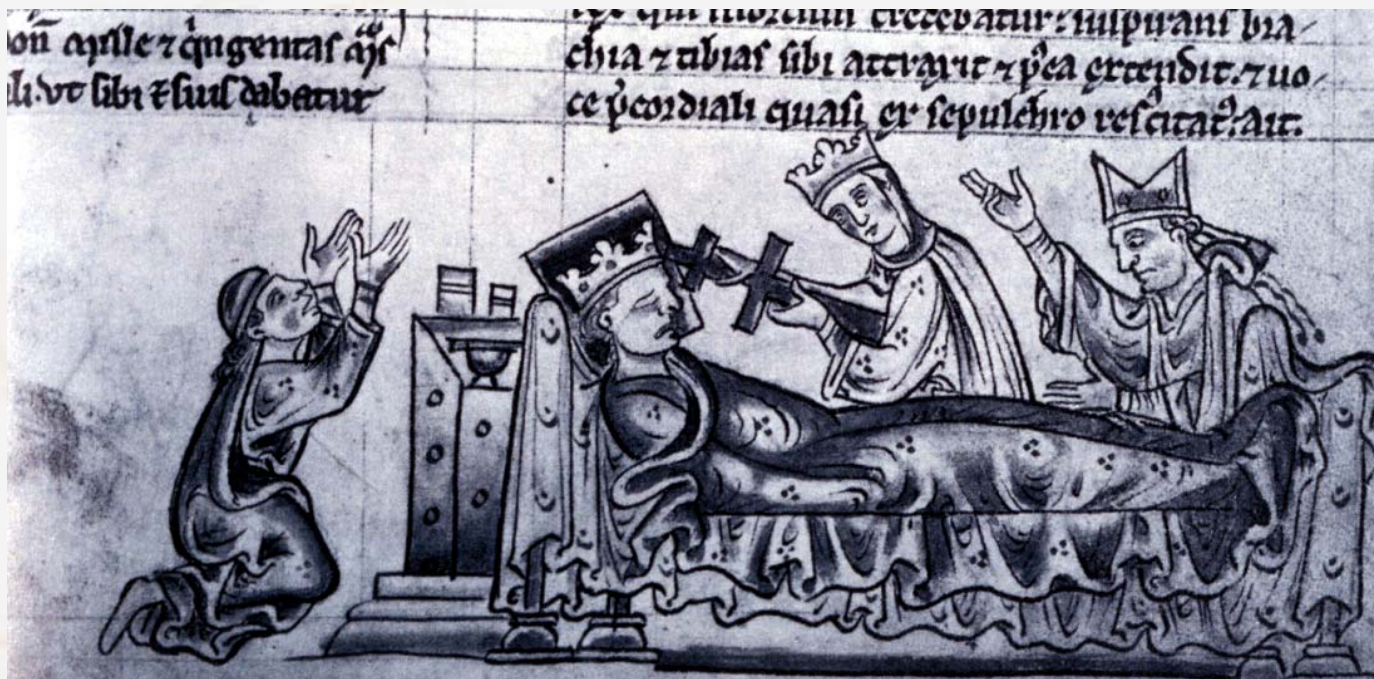 mille ⁊ qͥngentas
li. vt sibi ⁊ suis dabatur
qui credebatur: suspirans bra-
chia ⁊ tibias sibi attraxit ⁊ p̄ea extendit. ⁊ uo-
ce p̄cordiali quasi ex sepulchro rescitat᷒: ait.